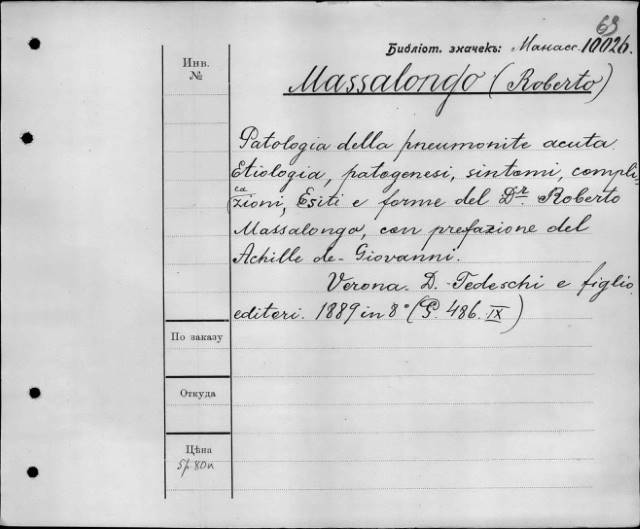 63
Библіот. значекъ: Манасс. 10026.
Инв.
№
Massalongo (Roberto)
Patologia della pneumonite acuta.
Etiologia, patogenesi, sintomi, compli-
ca
zioni, Esiti e forme del Dr. Roberto
Massalongo, con prefazione del
Achille de-Giovanni.
Verona. D. Tedeschi e figlio
editori. 1889 in 8° (P. 486. IX)
По заказу
Откуда
Цѣна
5р 80к